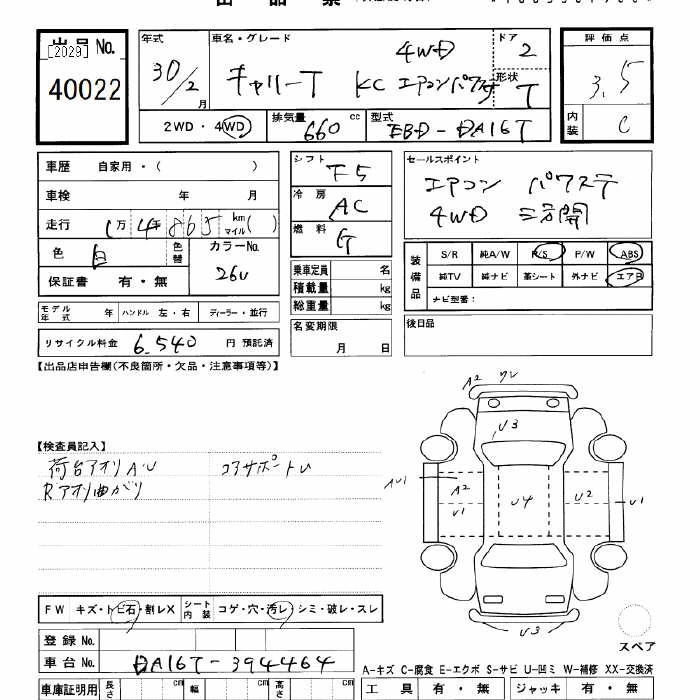 出品No.
[2029]
40022
年式 30/2月
車名・グレード 4WD
キャリーT KC エアコンパワステ
ドア 2
形状 T
2WD・4WD
排気量 660 cc
型式 EBD-DA16T
評価点
3.5
内装 C
車歴 自家用・( )
車検 年 月
走行 1万4千865 km マイル( )
色 白 色替
カラーNo. 26U
保証書 有・無
モデル年式 年 ハンドル 左・右 ディーラー・並行
リサイクル料金 6,540 円 預託済
シフト F5
冷房 AC
燃料 G
乗車定員 名
積載量 kg
総重量 kg
名変期限
月 日
セールスポイント
エアコン パワステ
4WD 三方開
装備品
S/R 純A/W P/S P/W ABS
純TV 純ナビ 革シート 外ナビ エアB
ナビ型番:
後日品
【出品店申告欄(不良箇所・欠品・注意事項等)】
【検査員記入】
荷台アオリA・U コアサポートU
Rアオリ曲がり
A2
U3
AU1
A2
U1
U4
U2
U1
U3
スペア
FW キズ・トビ石・割レX シート内装 コゲ・穴・汚レ・シミ・破レ・スレ
登録No.
車台No. DA16T-394464
A-キズ C-腐食 E-エクボ S-サビ U-凹ミ W-補修 XX-交換済
車庫証明用 長さ cm 幅 cm 高さ cm
工具 有・無 ジャッキ 有・無